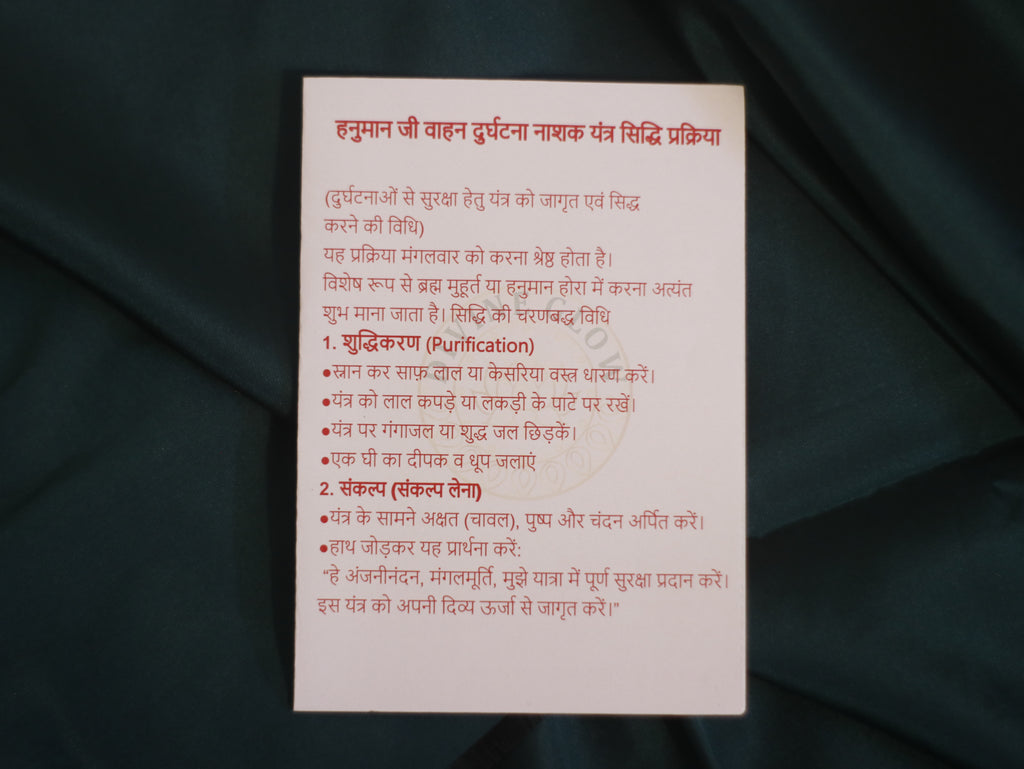 हनुमान जी वाहन दुर्घटना नाशक यंत्र सिद्धि प्रक्रिया
(दुर्घटनाओं से सुरक्षा हेतु यंत्र को जागृत एवं सिद्ध
करने की विधि)
यह प्रक्रिया मंगलवार को करना श्रेष्ठ होता है।
विशेष रूप से ब्रह्म मुहूर्त या हनुमान होरा में करना अत्यंत
शुभ माना जाता है। सिद्धि की चरणबद्ध विधि
DIVINE GLOW
1. शुद्धिकरण (Purification)
•स्नान कर साफ़ लाल या केसरिया वस्त्र धारण करें।
•यंत्र को लाल कपड़े या लकड़ी के पाटे पर रखें।
•यंत्र पर गंगाजल या शुद्ध जल छिड़कें।
•एक घी का दीपक व धूप जलाएं
2. संकल्प (संकल्प लेना)
•यंत्र के सामने अक्षत (चावल), पुष्प और चंदन अर्पित करें।
•हाथ जोड़कर यह प्रार्थना करें:
“हे अंजनीनंदन, मंगलमूर्ति, मुझे यात्रा में पूर्ण सुरक्षा प्रदान करें।
इस यंत्र को अपनी दिव्य ऊर्जा से जागृत करें।"